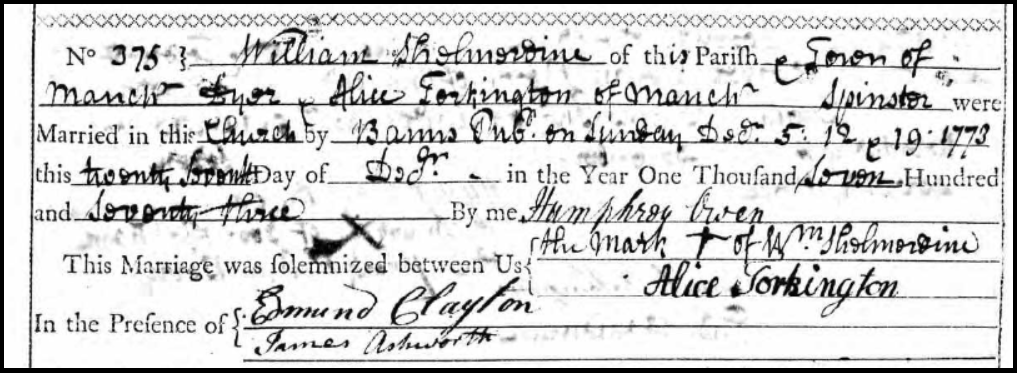 No 375 } William Sholmerdine of this Parish & Town of
Manchr Dyer & Alice Torkington of Manchr Spinster were
Married in this Church by Banns Pubd. on Sunday Decr. 5: 12 & 19: 1773
this twenty seventh Day of Decr. - in the Year One Thousand seven Hundred
and seventy three By me Humphrey Owen
This Marriage was solemnized between Us { the Mark + of Wm Sholmerdine
Alice Torkington
In the Presence of { Edmund Clayton
James Ashworth